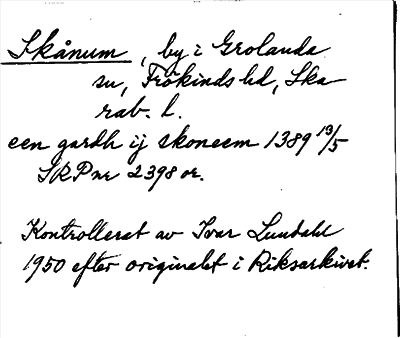 Skånum, by i Grolanda
sn, Frökinds hd, Ska
rab. l.
een gardh ij skoneem 1389 19/5
SRP nr 2398 or.
Kontrollerat av Ivar Lundahl
1950 efter originalet i Riksarkivet.